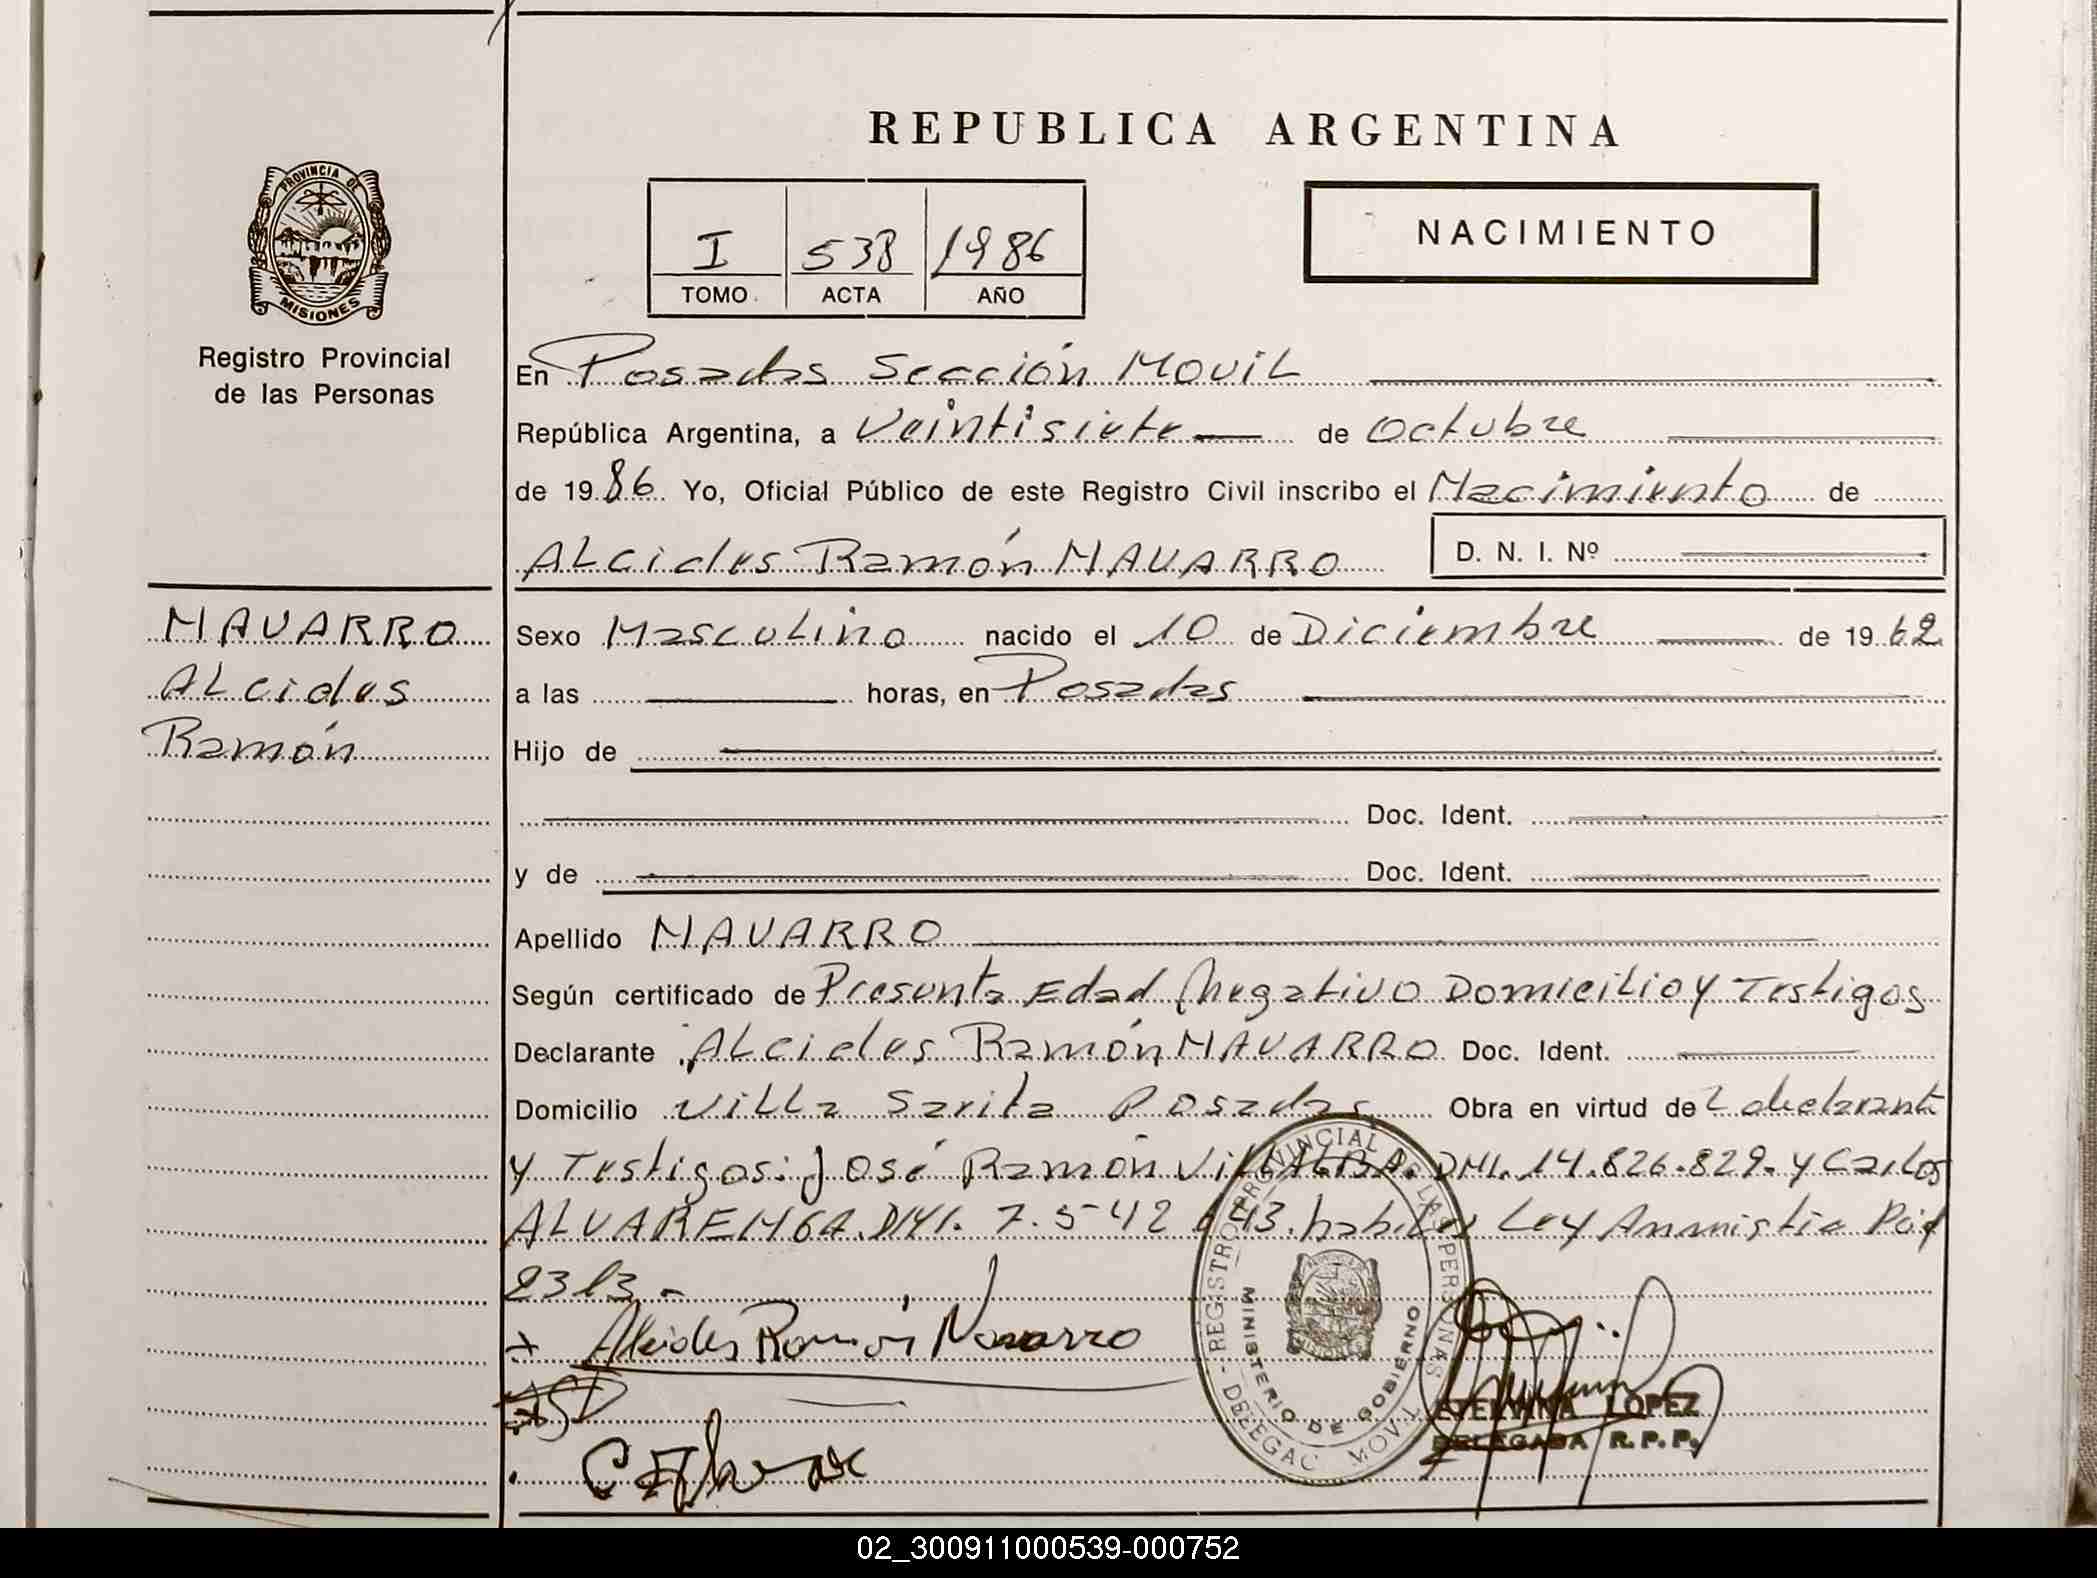 REPUBLICA ARGENTINA
PROVINCIA DE
MISIONES
Registro Provincial
de las Personas
I 538 1986
TOMO ACTA AÑO
NACIMIENTO
En Posadas Sección Movil
República Argentina, a Veintisiete de Octubre
de 1986 Yo, Oficial Público de este Registro Civil inscribo el Nacimiento de
Alcides Ramón NAVARRO D. N. I. Nº
NAVARRO
Alcides
Ramón
Sexo Masculino nacido el 10 de Diciembre de 1962
a las horas, en Posadas
Hijo de
Doc. Ident.
y de Doc. Ident.
Apellido NAVARRO
Según certificado de Presunta Edad Negativo Domicilio y Testigos
Declarante Alcides Ramón NAVARRO Doc. Ident.
Domicilio Villa Sarita Posadas Obra en virtud de
y Testigos: José Ramón VILLALBA. DNI. 14.826.829. y Carlos
DNI. 7.542.643. habiles Ley Amnistia
2313.-
Alcides Ramón Navarro
REGISTRO PROVINCIAL DE LAS PERSONAS
MINISTERIO DE GOBIERNO
DELEGAC. MOVIL
ETELVINA LOPEZ
DELEGADA R.P.P.
02_300911000539-000752